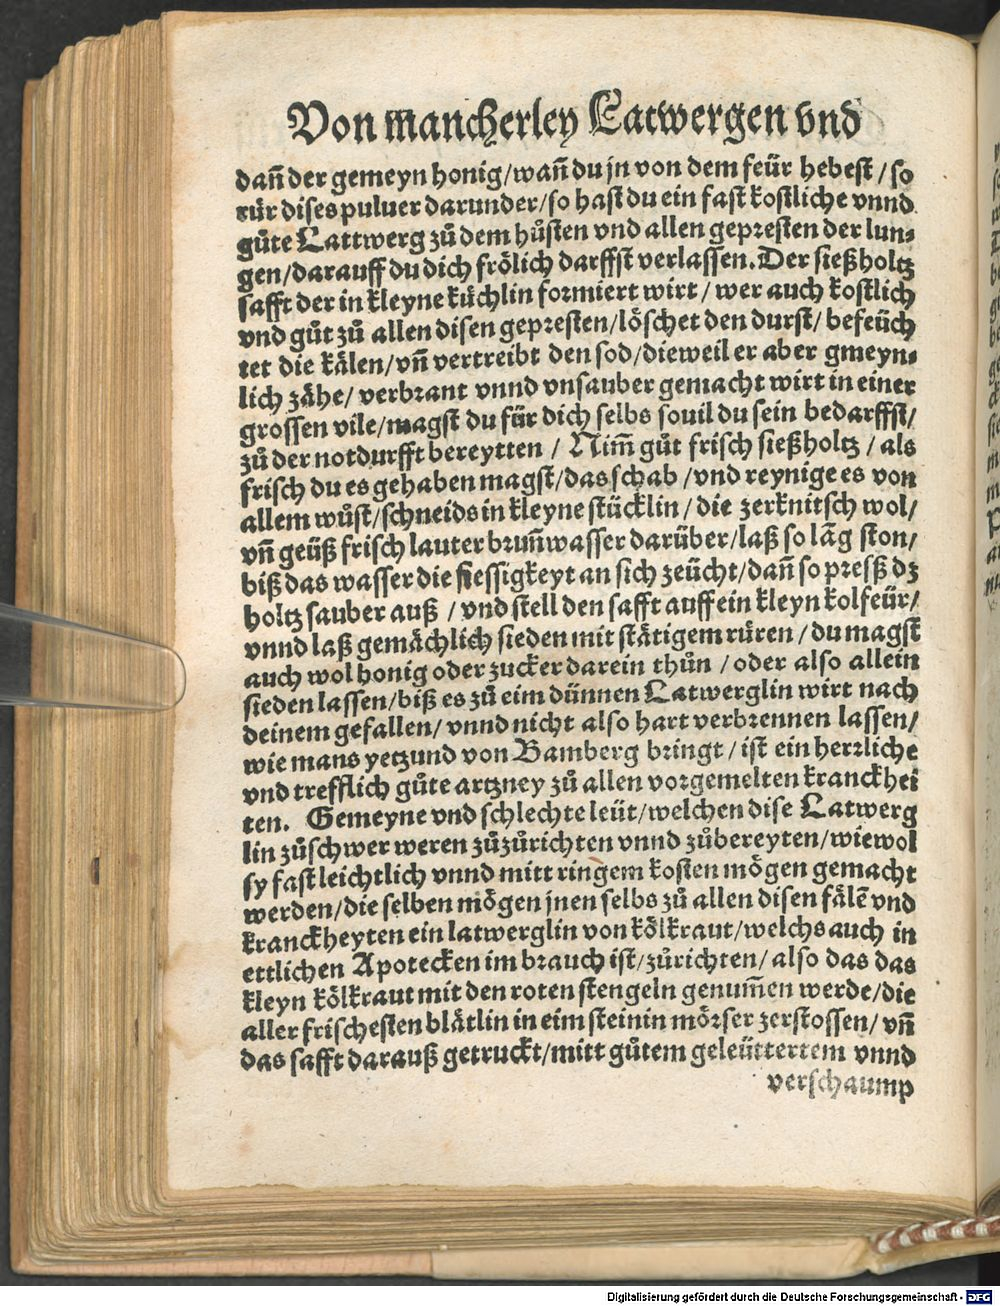 Von mancherley Latwergen vnd
dañ der gemeyn honig/wañ du jn von dem feür hebest/so
rür dises puluer darunder/so hast du ein fast kostliche vnnd
gůte Lattwerg zů dem hůsten vnd allen gepresten der lun⸗
gen/darauff du dich frölich darffst verlassen. Der sießholtz
safft der in kleyne küchlin formiert wirt/wer auch kostlich
vnd gůt zů allen disen gepresten/löschet den durst/befeüch
tet die kälen/vñ vertreibt den sod/dieweil er aber gmeyn⸗
lich zähe/verbrant vnnd vnsauber gemacht wirt in einer
grossen vile/magst du für dich selbs souil du sein bedarffst/
zů der notdurfft bereytten/Nim̃ gůt frisch sießholtz/als
frisch du es gehaben magst/das schab/vnd reynige es von
allem wůst/schneids in kleyne stücklin/die zerknitsch wol/
vñ geüß frisch lauter brun̄wasser darüber/laß so lãg ston/
biß das wasser die siessigkeyt an sich zeücht/dañ so presß dz
holtz sauber auß/vnd stell den safft auff ein kleyn kolfeür/
vnnd laß gemächlich sieden mit stätigem rüren/du magst
auch wol honig oder zucker darein thůn/oder also allein
sieden lassen/biß es zů eim dünnen Latwerglin wirt nach
deinem gefallen/vnnd nicht also hart verbrennen lassen/
wie mans yetzund von Bamberg bringt/ist ein herrliche
vnd trefflich gůte artzney zů allen vorgemelten kranckhei
ten. Gemeyne vnd schlechte leüt/welchen dise Latwerg
lin zůschwer weren zůzůrichten vnnd zůbereyten/wiewol
sy fast leichtlich vnnd mitt ringem kosten mögen gemacht
werden/die selben mögen jnen selbs zů allen disen fälẽ vnd
kranckheyten ein latwerglin von kölkraut/welchs auch in
ettlichen Apotecken im brauch ist/zůrichten/also das das
kleyn kölkraut mit den roten stengeln genum̃en werde/die
aller frischesten blätlin in eim steinin mörser zerstossen/vñ
das safft darauß getruckt/mitt gůtem geleüttertem vnnd
verschaump
Digitalisierung gefördert durch die Deutsche Forschungsgemeinschaft - DFG